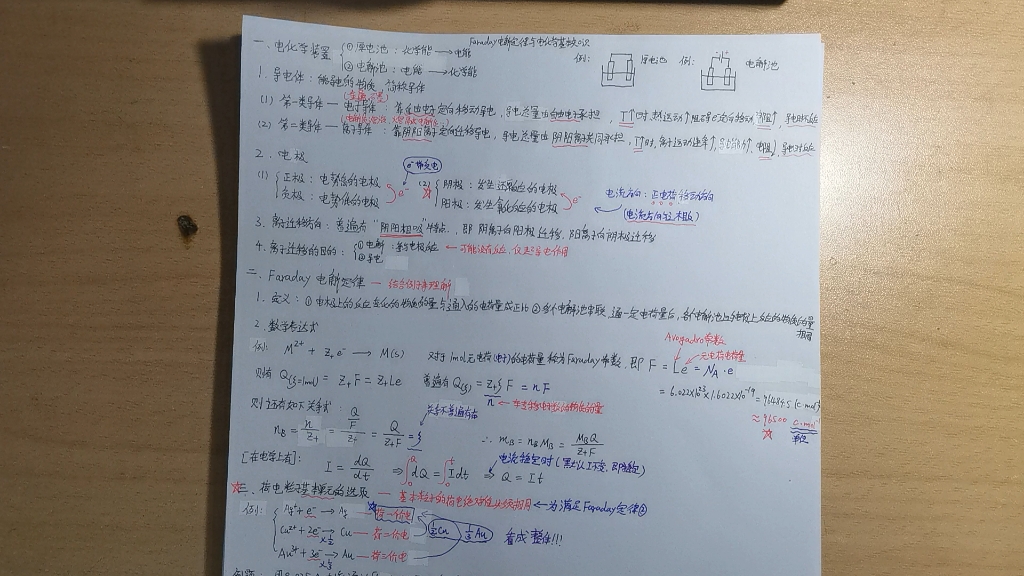 Faraday电解定律与电化学基础知识
一. 电化学装置 { ①原电池: 化学能 → 电能 例: 原电池 例: 电解池
②电解池: 电能 → 化学能
1. 导电体: 能导电的物质 简称导体
(1) 第一类导体 — 电子导体: 靠自由电子定向移动导电, 导电总量由自由电子承担, T↑时,
(2) 第二类导体 — 离子导体: 靠阴阳离子定向迁移导电, 导电总量由阴阳离子共同承担, T↑时, 离子运动速率↑,
2. 电极
e⁻带负电
(1) { 正极: 电势高的电极 e⁻ (2) { 阴极: 发生还原反应的电极 e⁻
负极: 电势低的电极 阳极: 发生氧化反应的电极
电流方向: 正电荷移动方向
(电流方向与之相反)
3. 离子迁移方向: 普遍有“阴阳相吸”特点, 即 阴离子向阳极迁移, 阳离子向阴极迁移
4. 离子迁移的目的: { ①电解: 参与电极反应 ← 可能没有反应, 仅是导电作用
②导电
二. Faraday 电解定律 — 结合例子来理解
1. 定义: ①电极上的反应变化的物质的量与通入的电荷量成正比 ②多个电解池串联, 通一定电荷量后, 各个电解池上电极上反应的物质的量
相同
2. 数学表达式
Avogadro常数
例: M^{z+} + z₊e⁻ → M(s) 对于1mol元电荷(电子)的电荷量称为Faraday常数, 即 F = Le = N_A·e
元电荷电荷量
则有 Q(ξ=1mol) = z₊F = z₊Le 普遍有 Q(ξ) = z₊ξF = nF
= 6.022×10²³×1.6022×10⁻¹⁹ = 96484.5 C·mol⁻¹
n ←
≈ 96500 C·mol⁻¹
单位
则还有如下关系式:
n_B = n/z₊ = (Q/F)/z₊ = Q/(z₊F) = ξ ∴ m_B = n_B M_B = M_B Q/(z₊F)
[在电学上有]: I = dQ/dt ⇒ ∫₀^Q dQ = ∫₀^t I dt ⇒ Q = It
电流稳定时 (默认I不变, 即稳定)
三. 荷电粒子基本单元的选取 — 基本粒子的荷电绝对值必须相同 ← 为满足Faraday定律②
例: { Ag⁺ + e⁻ → Ag — 荷一价电
Cu²⁺ + 2e⁻ → Cu — 荷二价电 ½Cu ⅓Au 看成整体!!!
×½
Au³⁺ + 3e⁻ → Au — 荷三价电
×⅓
例题: